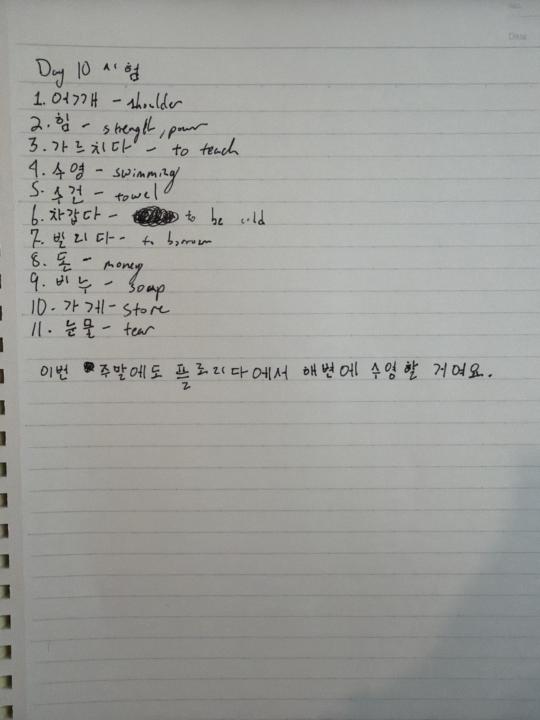 Day 10 시험
1. 어깨 - shoulder
2. 힘 - strength, power
3. 가르치다 - to teach
4. 수영 - swimming
5. 수건 - towel
6. 차갑다 - to be cold
7. 빌리다 - to borrow
8. 돈 - money
9. 비누 - soap
10. 가게 - store
11. 눈물 - tear
이번 주말에도 플로리다에서 해변에 수영할 거여요.